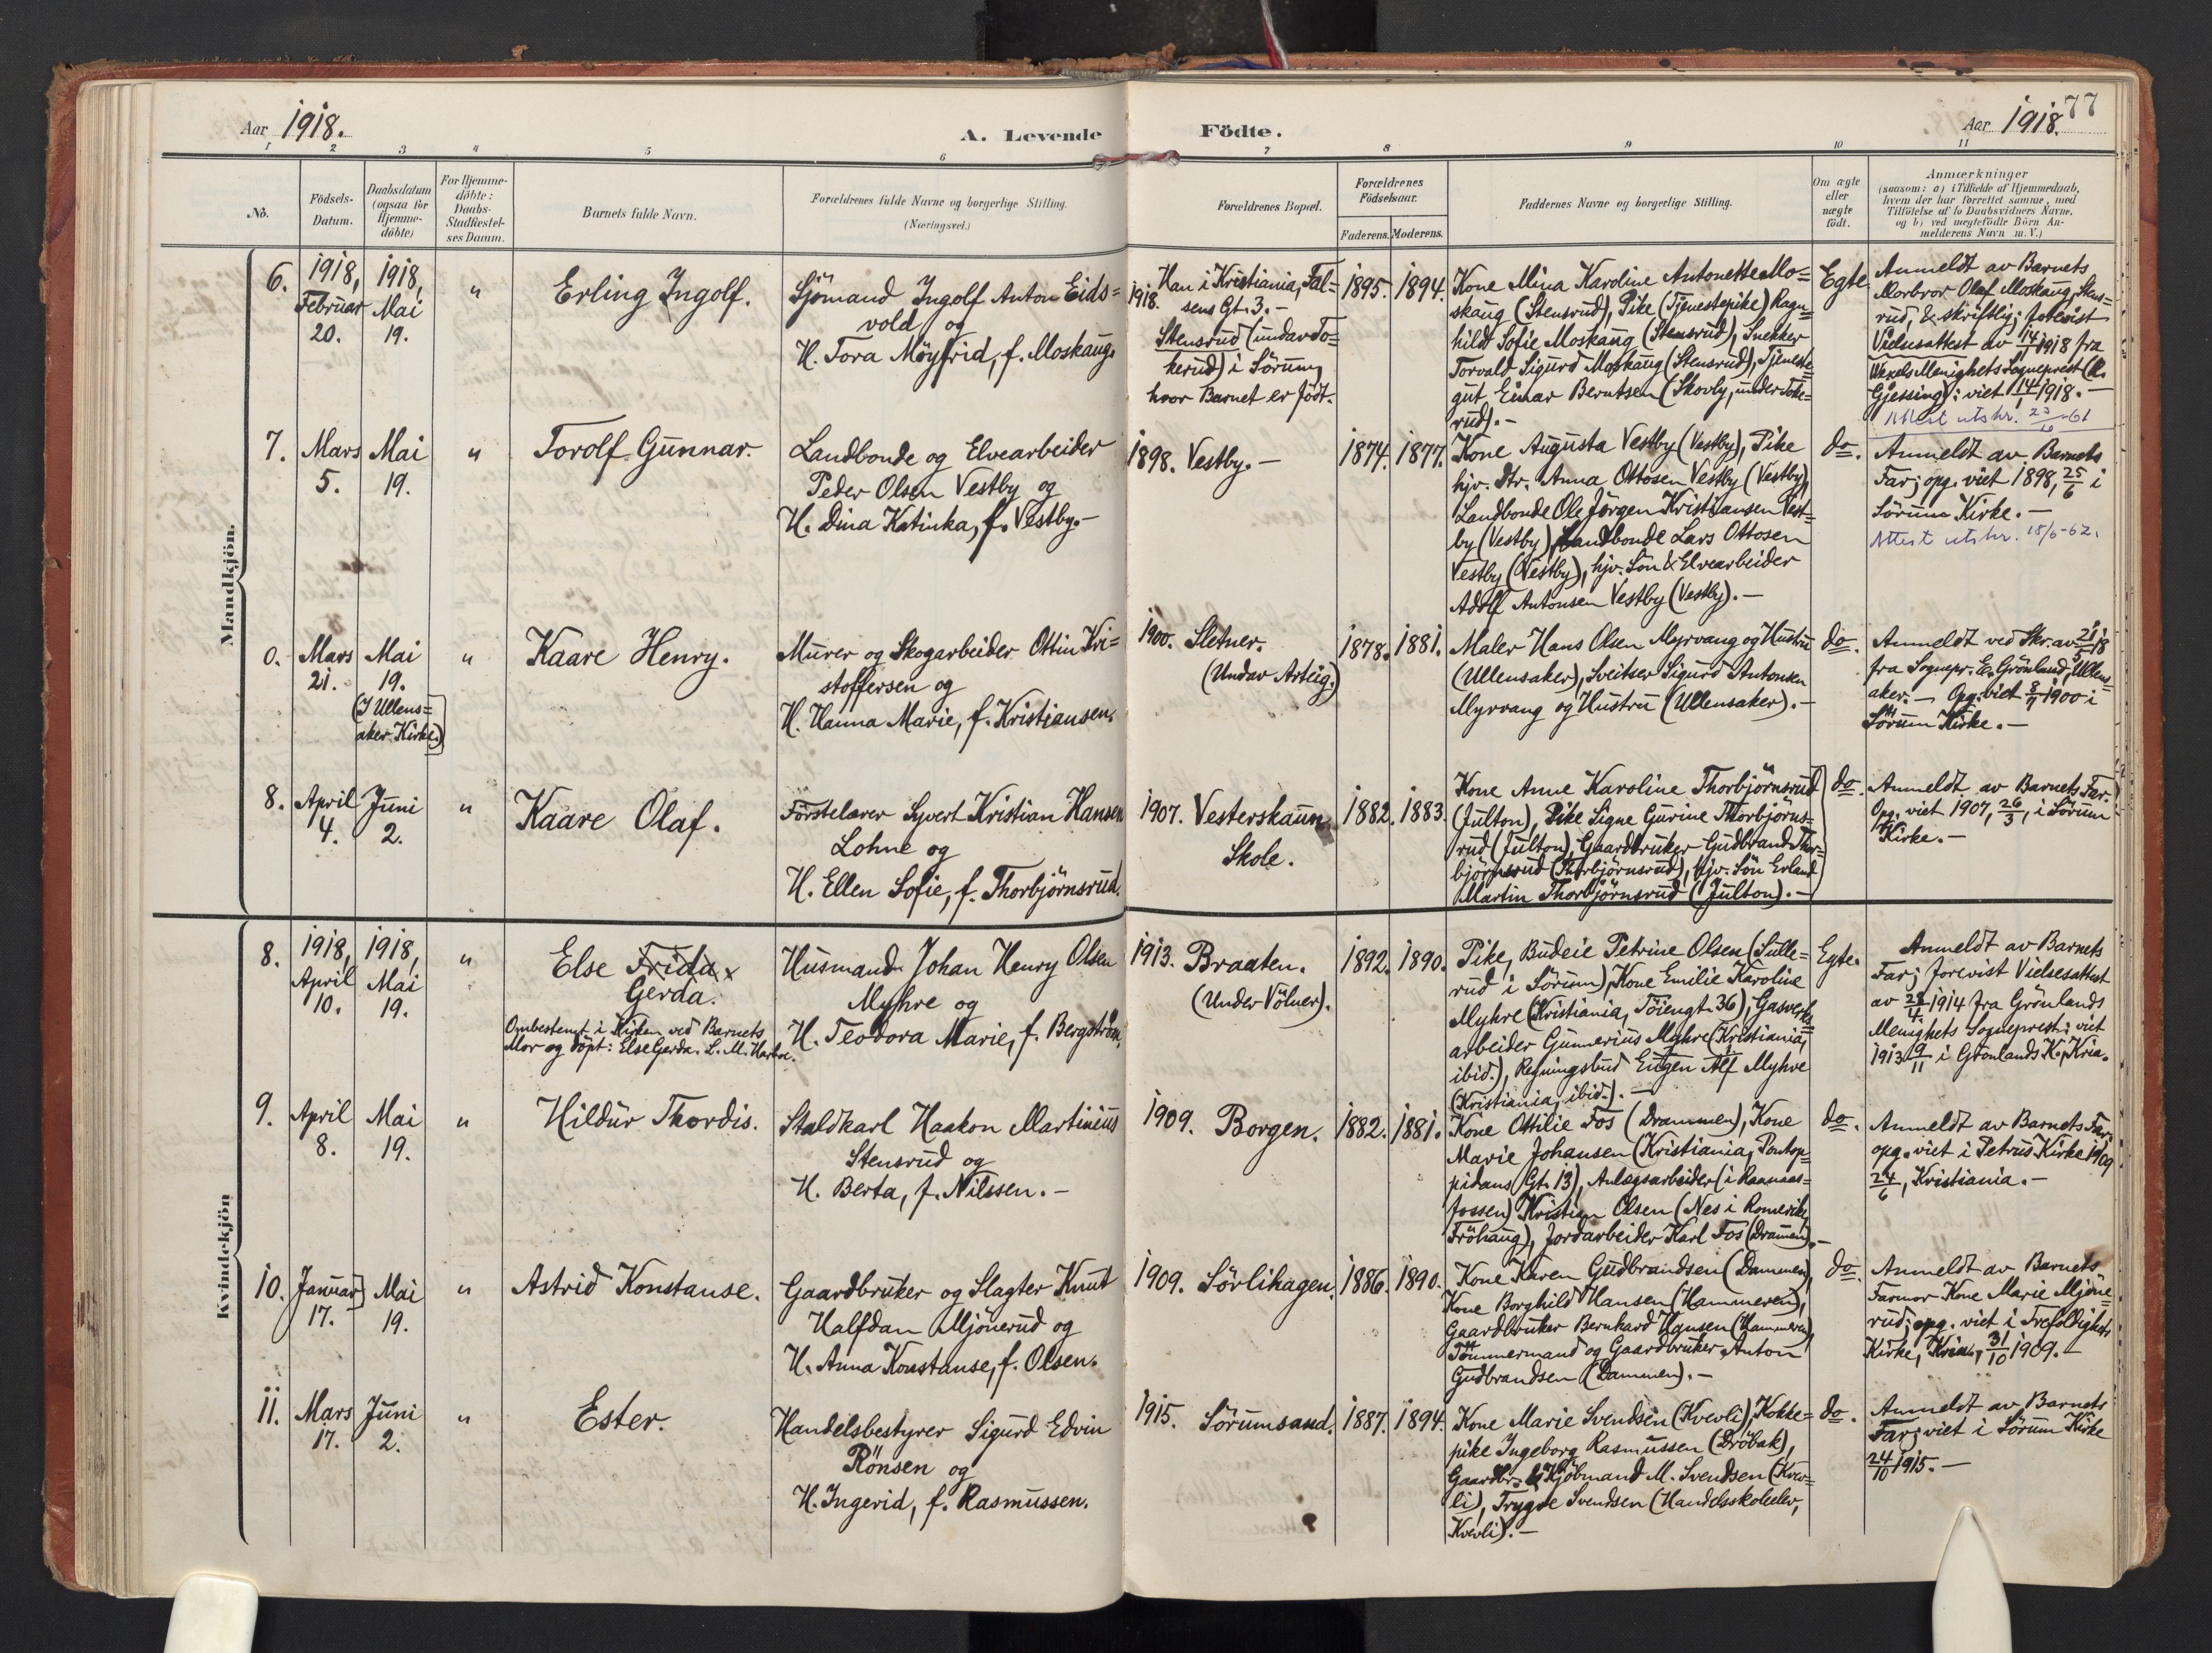 Aar 1918.
A. Levende
Födte.
Aar 1918.
77
1 2 3 4 5 6 7 8 9 10 11
No.
Födsels-
Datum.
Daabsdatum
(ogsaa for
Hjemme-
döbte)
For Hjemme-
döbte:
Daabs-
Stadfæstel-
ses Datum.
Barnets fulde Navn.
Forældrenes fulde Navne og borgerlige Stilling.
(Næringsvei.)
Forældrenes Bopæl.
Forældrenes
Födselsaar.
Faderens. Moderens.
Faddernes Navne og borgerlige Stilling.
Om ægte
eller
uægte
födt.
Anmærkninger
(saasom: a) i Tilfælde af Hjemmedaab,
hvem der har forrettet samme, med
Tilföielse af to Daabsvidners Navne,
og b) ved uægtefödte Börn An-
melderens Navn m. V.)
Mandkjön.
6.
1918,
Februar
20.
1918,
Mai
19.
"
Erling Ingolf.
Sjömand Ingolf Anton Eids=
vold og
H. Tora Möyfrid, f. Moskaug.
1918.
Han i Kristiania, Fal=
sens Gt. 3. —
Stensrud (undav To=
kerud) i Sörum,
hvor Barnet er födt.
1895. 1894.
Kone Mina Karoline Antonette Mo=
skaug (Stensrud), Pike (Tjenestepike) Ragn=
hild Sofie Moskaug (Stensrud), Snekker
Torvald Sigurd Moskaug (Stensrud), Tjeneste=
gut Einar Berntsen (Skovly, under Toke=
rud). —
Egte.
Anmeldt av Barnets
Morbror Olaf Moskaug, Stens=
rud, & skriftlig; forevist
Vielsesattest av 14/1 1918 fra
Wexels Menighets Sogneprest (R.
Gjessing): viet 14/1 1918. —
Attest utskr. 23/10-61
7.
Mars
5.
Mai
19.
"
Torolf Gunnar.
Landbonde og Elvearbeider
Peder Olsen Vestby og
H. Dina Katinka, f. Vestby. —
1898. Vestby. —
1874. 1877.
Kone Augusta Vestby (Vestby), Pike
hjv. Dtr. Anna Ottosen Vestby (Vestby),
Landbonde Ole Jörgen Kristiansen Vest=
by (Vestby), Landbonde Lars Ottosen
Vestby (Vestby), hjv. Sön & Elvearbeider
Adolf Antonsen Vestby (Vestby). —
do.
Anmeldt av Barnets
Far; opg. viet 1898, 25/6 i
Sörum Kirke. —
Attest utskr. 18/6-62.
0.
Mars
21.
Mai
19.
(I Ullens=
aker Kirke.)
"
Kaare Henry.
Murer og Skogarbeider Ottin Kri=
stoffersen og
H. Hanna Marie, f. Kristiansen.
1900. Sletner.
(Undav Arteig.)
1878. 1881.
Maler Hans Olsen Myrvang og Hustru
(Ullensaker), Sveitser Sigurd Antonsen
Myrvang og Hustru (Ullensaker). —
do.
Anmeldt ved Skr. av 21/5 18
fra Sognepr. E. Grönland, Ullens=
aker. — Opg. viet 8/4 1900 i
Sörum Kirke. —
8.
April
4.
Juni
2.
"
Kaare Olaf.
Förstelærer Syvert Kristian Hansen
Lohne og
H. Ellen Sofie, f. Thorbjörnsrud.
1907. Vesterskaun
Skole.
1882. 1883.
Kone Anne Karoline Thorbjörnsrud
(Julton), Pike Signe Gurine Thorbjörns=
rud (Julton), Gaardbruker Gudbrand Thor=
björnsrud (Thorbjörnsrud), hjv. Sön Erland
Martin Thorbjörnsrud (Julton). —
do.
Anmeldt av Barnets Far.
Opg. viet 1907, 26/3, i Sörum
Kirke. —
Kvindekjön
8.
1918,
April
10.
1918,
Mai
19.
"
Else Frida x
Gerda.
Ombestemt i Kirken ved Barnets
Mor og döpt: Else Gerda.
Husmand Johan Henry Olsen
Myhre og
H. Teodora Marie, f. Bergström.
1913. Braaten.
(Under Völner).
1892. 1890.
Pike, Budeie Petrine Olsen (Sulle=
rud i Sörum), Kone Emilie Karoline
Myhre (Kristiania, Töiengt. 36), Gasverks=
arbeider Gunnerius Myhre (Kristiania,
ibid.), Regningsbud Eugen Alf Myhre
(Kristiania, ibid.). —
Egte.
Anmeldt av Barnets
Far; forevist Vielsesattest
av 28/4 1914 fra Grönlands
Menighets Sogneprest: viet
1913 9/11 i Grönlands K., Kria.
9.
April
8.
Mai
19.
"
Hildur Thordis.
Staldkarl Haakon Martinius
Stensrud og
H. Berta, f. Nilssen. —
1909. Borgen.
1882. 1881.
Kone Ottilie Fos (Drammen), Kone
Marie Johansen (Kristiania, Pontop=
pidans Gt. 13), Anlægsarbeider (i Raanaas=
fossen) Kristian Olsen (Nes i Romerike,
Fröhaug), Jordarbeider Karl Fos (Drammen). —
do.
Anmeldt av Barnets Far.
opg. viet i Petrus Kirke 1909
24/6, Kristiania. —
10.
Januar
17.
Mai
19.
"
Astrid Konstanse.
Gaardbruker og Slagter Knut
Halfdan Mjönerud og
H. Anna Konstanse, f. Olsen.
1909. Sörlihagen.
1886. 1890.
Kone Karen Gudbrandsen (Dammen),
Kone Borghild Hansen (Hammeren),
Gaardbruker Bernhard Hansen (Hammeren),
Tömmermand og Gaardbruker Anton
Gudbrandsen (Dammen). —
do.
Anmeldt av Barnets
Farmor Kone Marie Mjöne=
rud; opg. viet i Trefoldigheds
Kirke, Kria., 31/10 1909. —
11.
Mars
17.
Juni
2.
"
Ester.
Handelsbestyrer Sigurd Edvin
Rönsen og
H. Ingerid, f. Rasmussen.
1915. Sörumsand.
1887. 1894.
Kone Marie Svendsen (Kvevli), Kokke=
pike Ingeborg Rasmussen (Dröbak),
Gaardbr. & Kjöbmand M. Svendsen (Kvev=
li), Trygve Svendsen (Handelsskoleelev,
Kvevli). —
do.
Anmeldt av Barnets
Far; viet i Sörum Kirke
24/10 1915. —